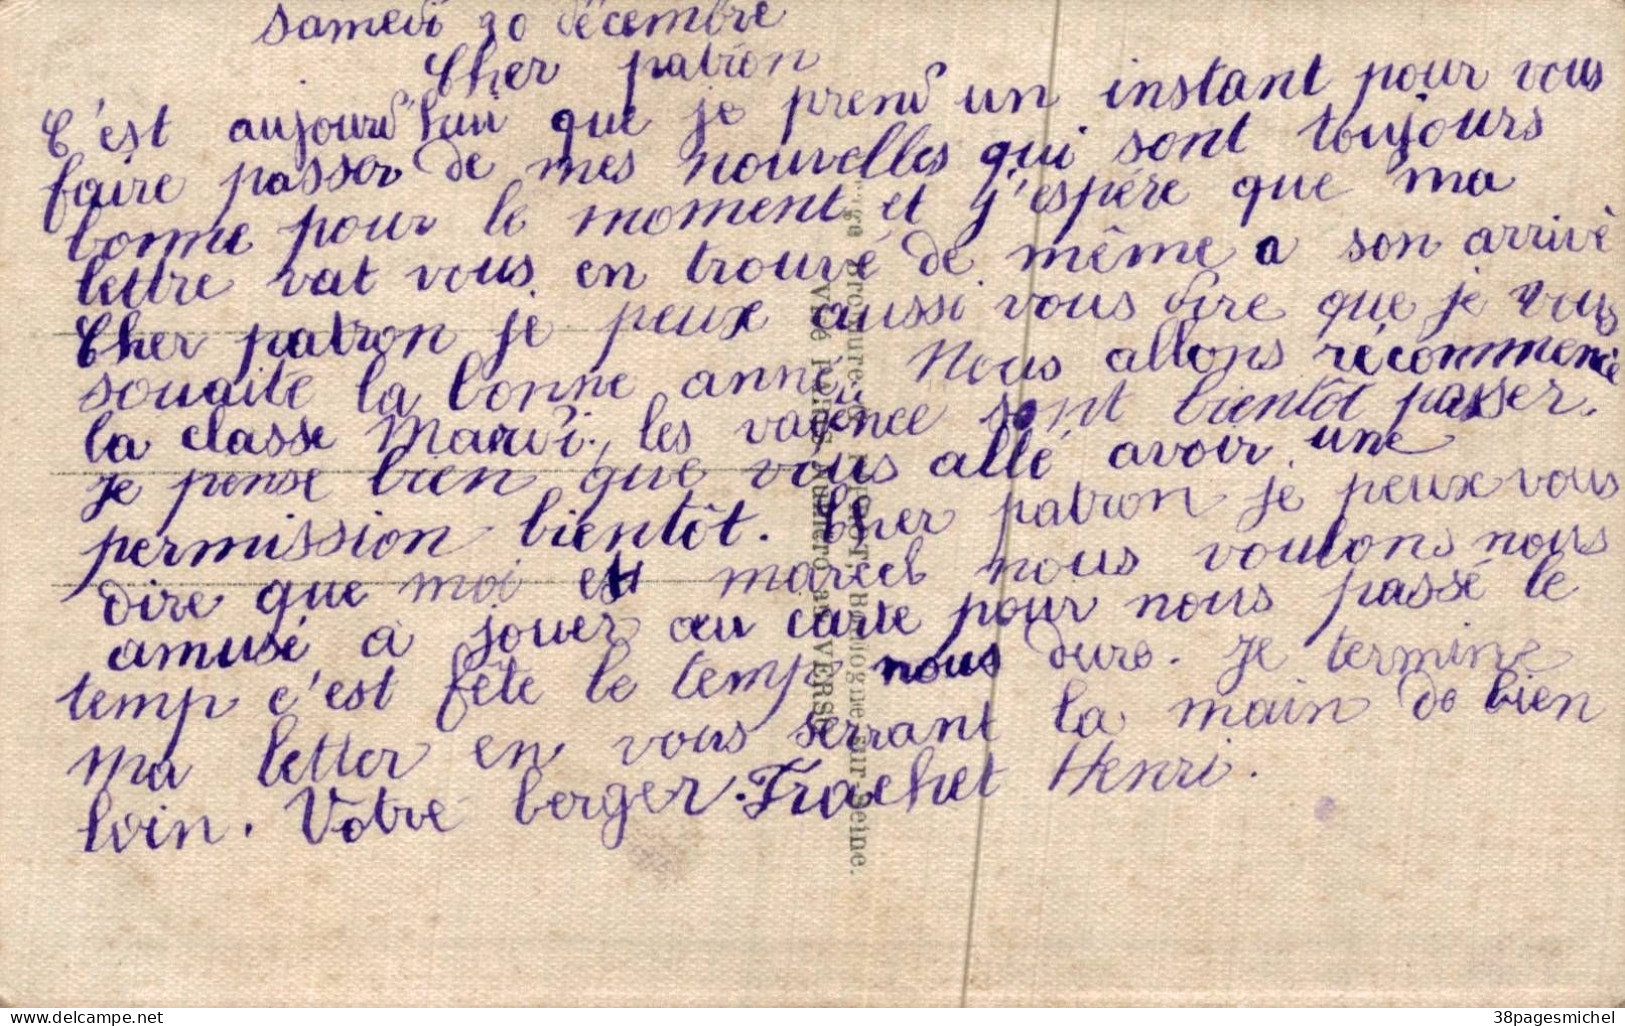 Samedi 30 décembre
Cher patron
C'est aujourd'hui que je prend un instant pour vous
faire passer de mes nouvelles qui sont toujours
bonne pour le moment et j'espére que ma
lettre vat vous en trouvé de même a son arrivé
Cher patron je peux aussi vous dire que je vous
souaite la bonne anné Nous allons récommencé
la classe Mardi, les vacence sont bientôt passer.
Je pense bien que vous allé avoir une
permission bientôt. Cher patron je peux vous
dire que moi et marcel nous voulons nous
amusé a jouer au carte pour nous passé le
temp c'est fête le temp nous dure. Je termine
Ma letter en vous serrant la main de bien
loin. Votre berger. Frachet Henri.
Delcampe.net
38pagesmichel